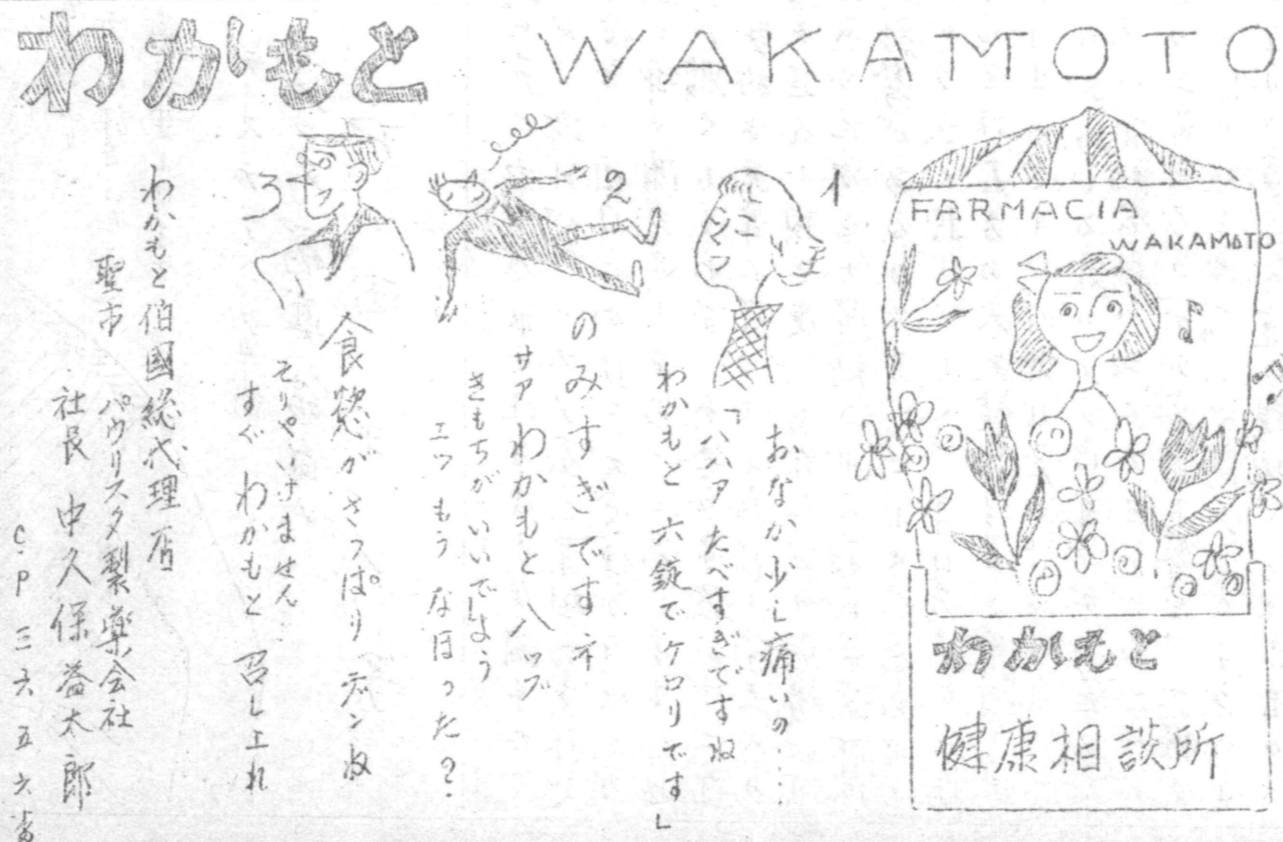 わかもと
WAKAMOTO
FARMACIA
WAKAMOTO
わかもと
健康相談所
1
おなか少し痛いの……
「ハハア たべすぎですね
わかもと 六錠でケロリです」
2
のみすぎですネ
サア わかもと 八ツブ
きもちがいいでしょう
エッ もう なほった?
3
食慾が さっぱり デンね
そりゃいけません
すぐ わかもと 召し上れ
わかもと伯國総代理店
聖市 パウリスタ製薬会社
社長 中久保益太郎
C.P 三六五六番